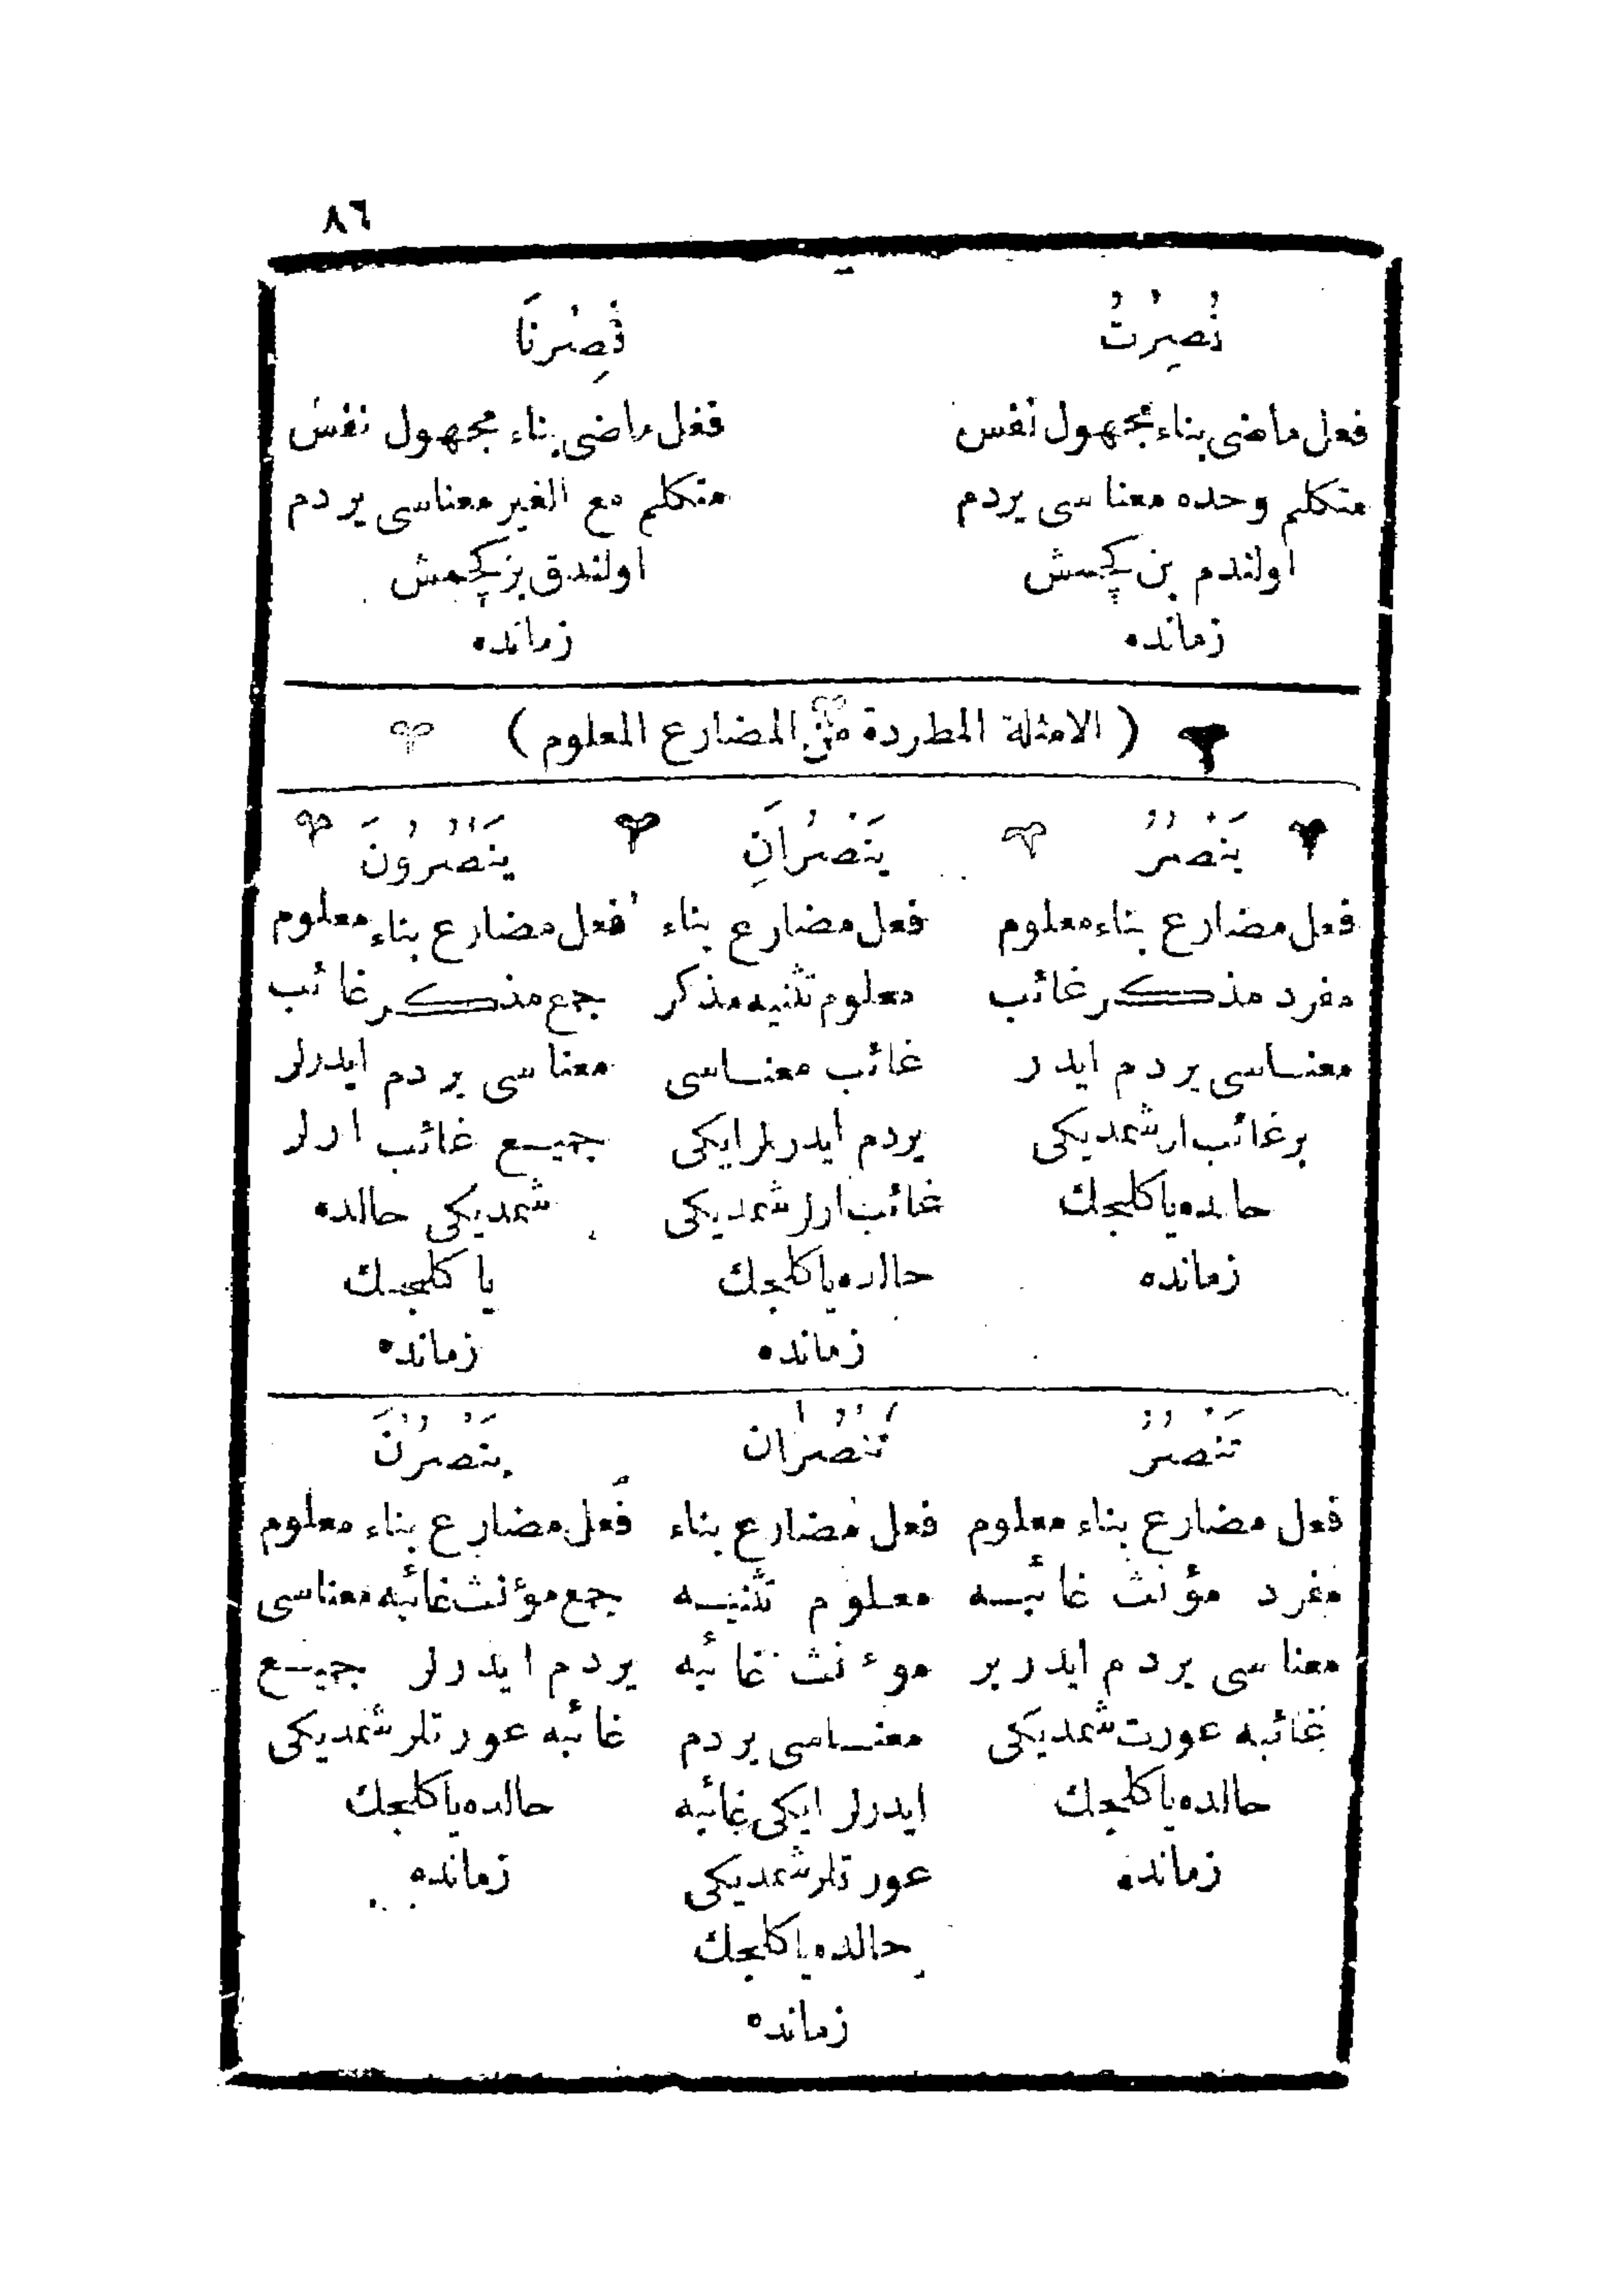 ٨٦
نُصِرْتُ
فعل ماضى بناء مجهول نفس
متكلم وحده معناسى يردم
اولندم بن كچمش
زمانده
نُصِرْنَا
فعل ماضى بناء مجهول نفس
متكلم مع الغير معناسى يردم
اولندق بز كچمش
زمانده
( الامثلة المطردة من المضارع المعلوم )
يَنْصُرُ
فعل مضارع بناء معلوم
مفرد مذكر غائب
معناسى يردم ايدر
بر غائب ار شمديكى
حالده يا كلجك
زمانده
يَنْصُرَانِ
فعل مضارع بناء
معلوم تثنيه مذكر
غائب معناسى
يردم ايدرلر ايكى
غائب ارلر شمديكى
حالده يا كلجك
زمانده
يَنْصُرُونَ
فعل مضارع بناء معلوم
جمع مذكر غائب
معناسى يردم ايدرلر
جميع غائب ارلر
شمديكى حالده
يا كلجك
زمانده
تَنْصُرُ
فعل مضارع بناء معلوم
مفرد مؤنث غائبه
معناسى يردم ايدر بر
غائبه عورت شمديكى
حالده يا كلجك
زمانده
تَنْصُرَان
فعل مضارع بناء
معلوم تثنيه
موءنث غائبه
معناسى يردم
ايدرلر ايكى غائبه
عورتلر شمديكى
حالده يا كلجك
زمانده
يَنْصُرْنَ
فعل مضارع بناء معلوم
جمع موءنث غائبه معناسى
يردم ايدرلر جميع
غائبه عورتلر شمديكى
حالده يا كلجك
زمانده